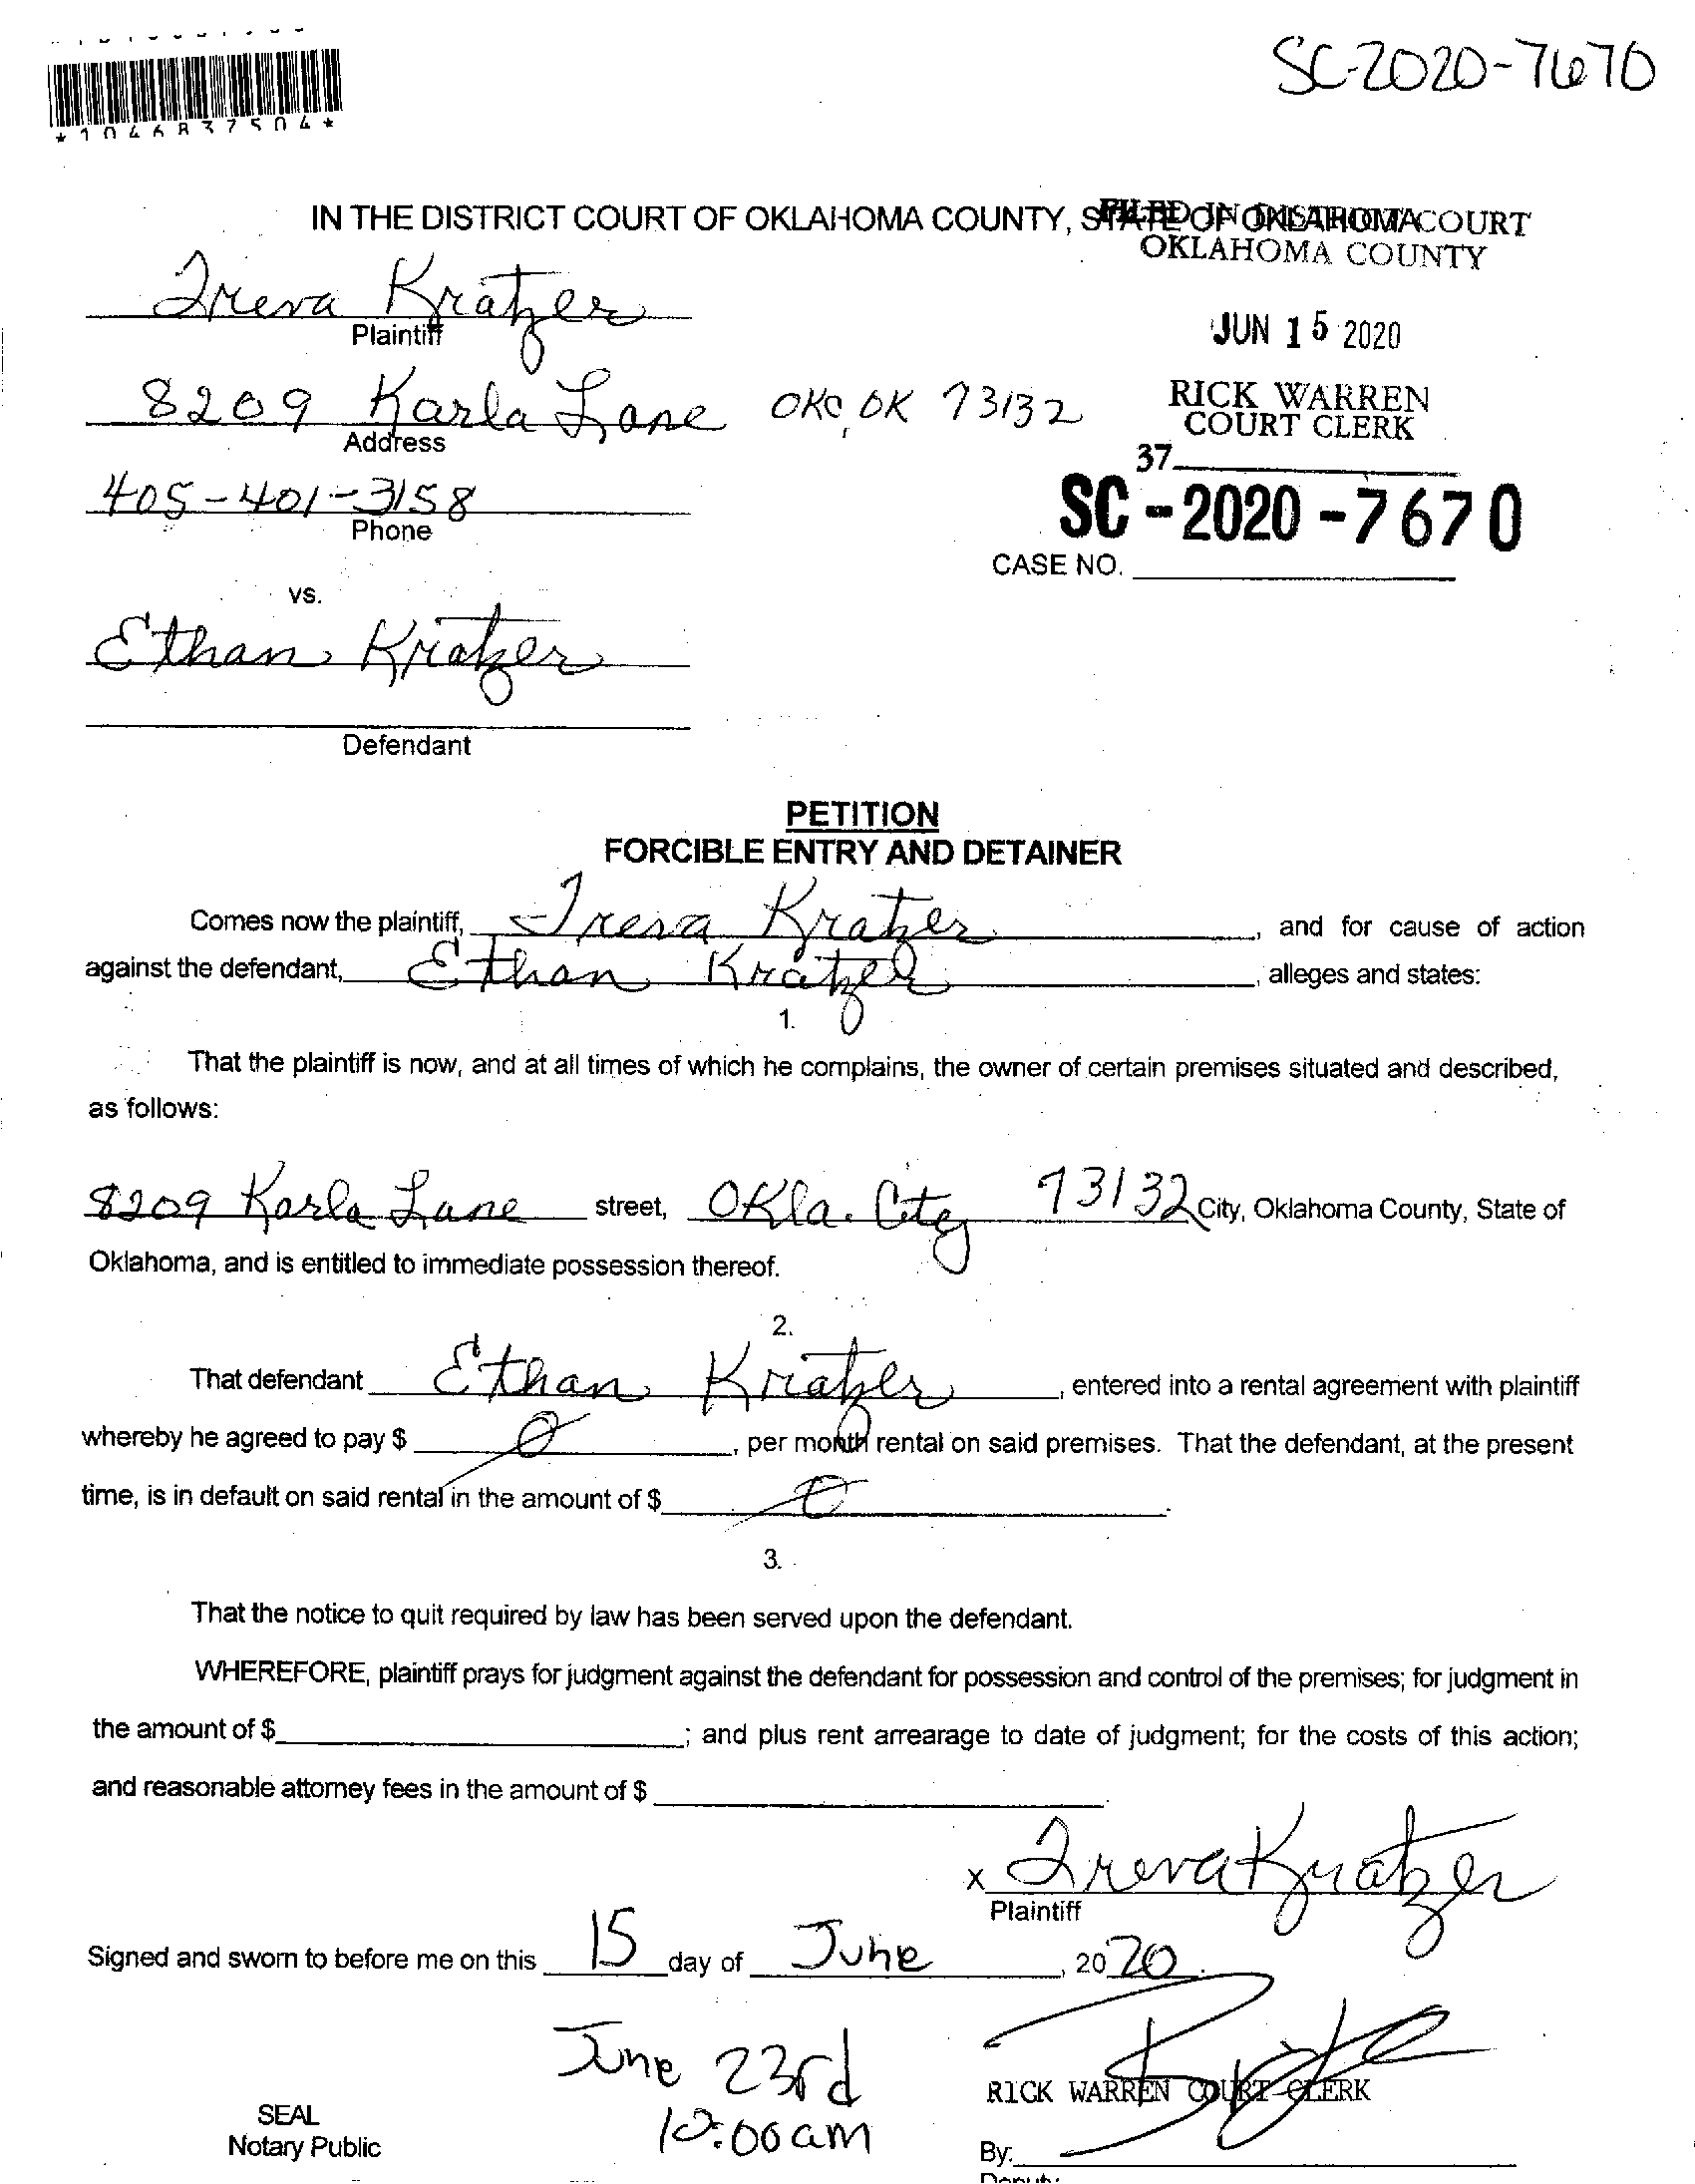 SC-2020-7670
*1046837504*
IN THE DISTRICT COURT OF OKLAHOMA COUNTY, STATE OF OKLAHOMA
FILED IN DISTRICT COURT
OKLAHOMA COUNTY
Treva Kratzer
Plaintiff
JUN 15 2020
8209 Karla Lane OKC, OK 73132
Address
RICK WARREN
COURT CLERK
37
405-401-3158
Phone
SC-2020-7670
CASE NO.
vs.
Ethan Kratzer
Defendant
PETITION
FORCIBLE ENTRY AND DETAINER
Comes now the plaintiff, Treva Kratzer, and for cause of action
against the defendant, Ethan Kratzer, alleges and states:
1.
That the plaintiff is now, and at all times of which he complains, the owner of certain premises situated and described,
as follows:
8209 Karla Lane street, Okla. City 73132 City, Oklahoma County, State of
Oklahoma, and is entitled to immediate possession thereof.
2.
That defendant Ethan Kratzer, entered into a rental agreement with plaintiff
whereby he agreed to pay $ 0, per month rental on said premises. That the defendant, at the present
time, is in default on said rental in the amount of $ 0.
3.
That the notice to quit required by law has been served upon the defendant.
WHEREFORE, plaintiff prays for judgment against the defendant for possession and control of the premises; for judgment in
the amount of $ ; and plus rent arrearage to date of judgment; for the costs of this action;
and reasonable attorney fees in the amount of $ .
x Treva Kratzer
Plaintiff
Signed and sworn to before me on this 15 day of June, 2020.
June 23rd
10:00am
RICK WARREN COURT CLERK
SEAL
Notary Public
By:
Deputy